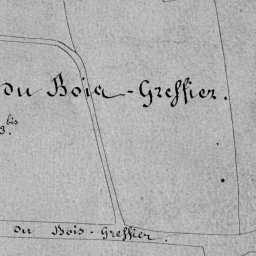 du Bois-Greffier.
bis
3.
du Bois-Greffier.